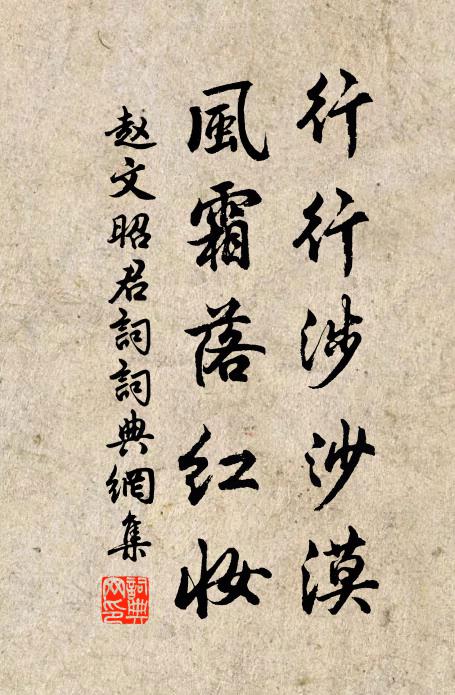 行行涉沙漠
風霜落红妝
赵文昭君詞詞典網集
詞典网印